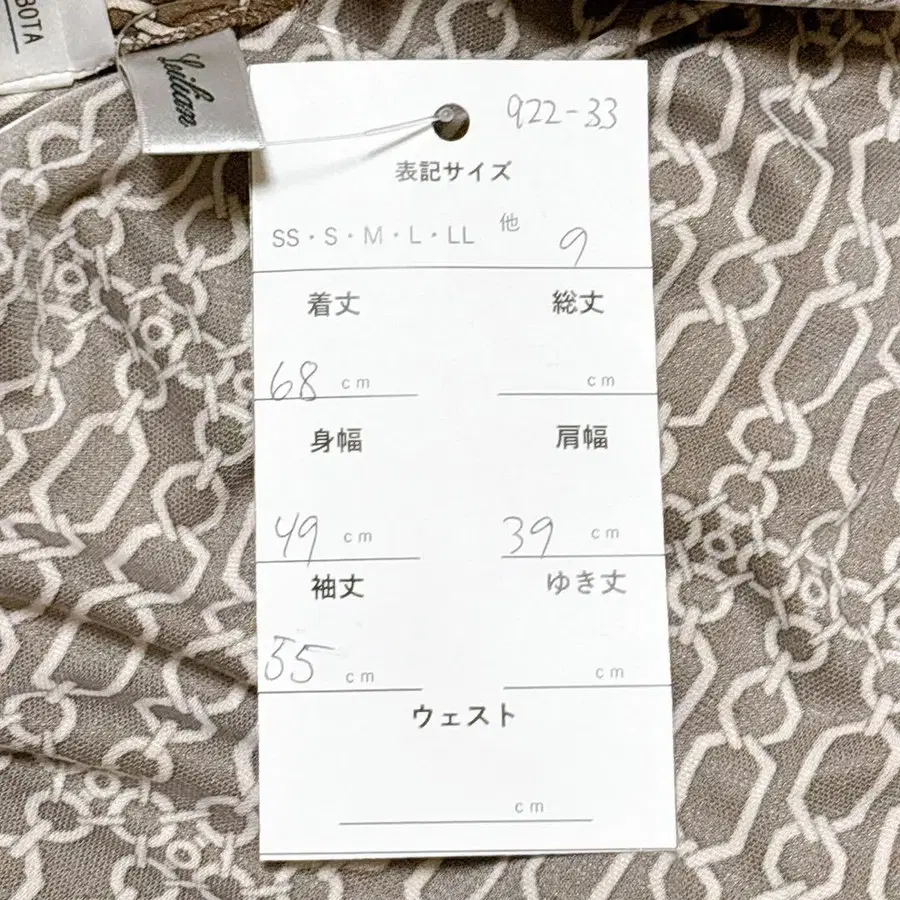 BOTA
922-33
表記サイズ
SS・S・M・L・LL 他 9
着丈 総丈
68 cm cm
身幅 肩幅
49 cm 39 cm
袖丈 ゆき丈
55 cm cm
ウェスト
cm